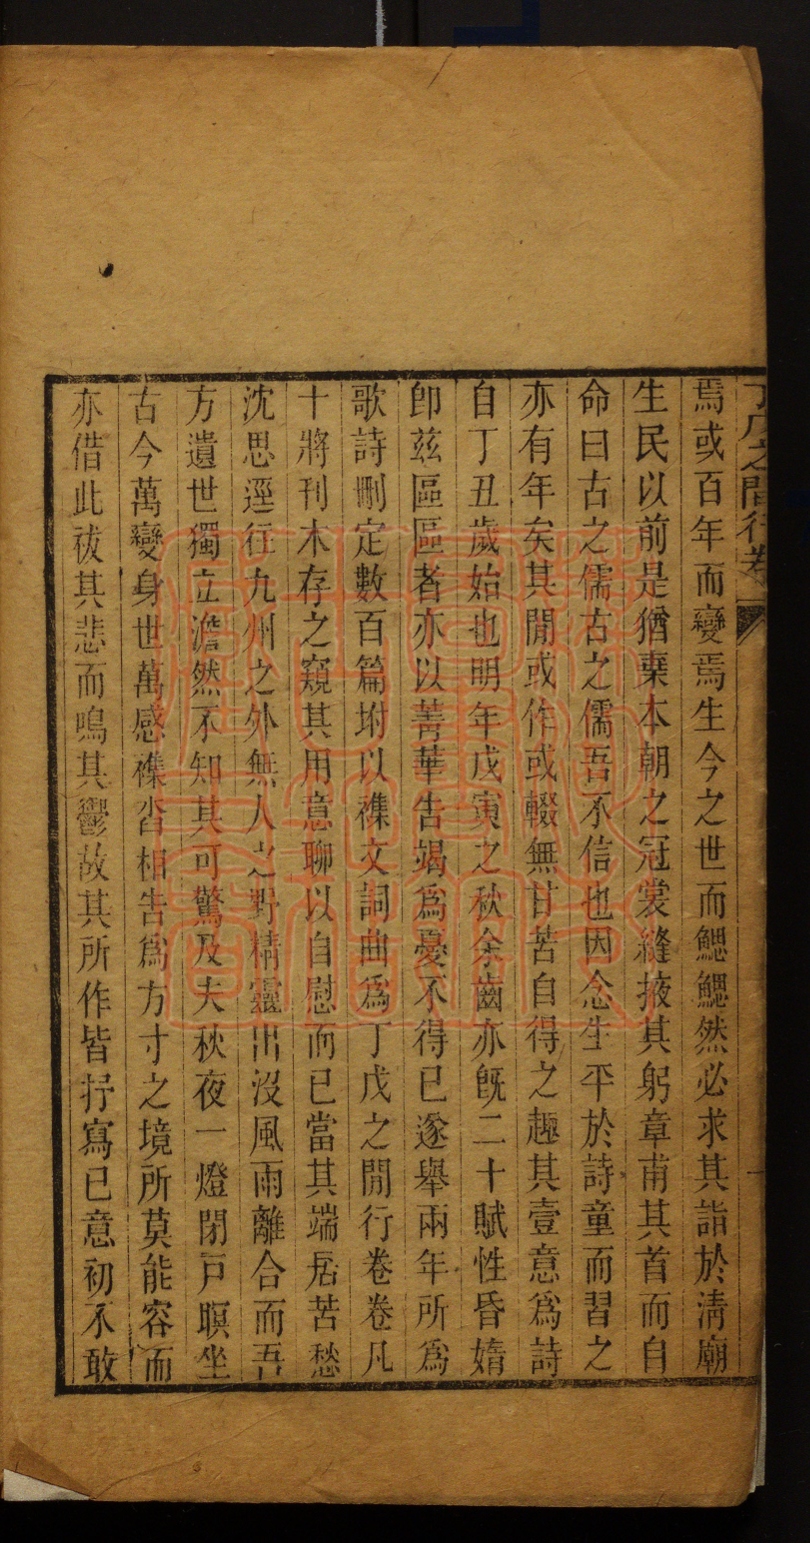 丁戊之閒行卷
焉或百年而變焉生今之世而鰓鰓然必求其詣於淸廟
生民以前是猶棄本朝之冠裳縫掖其躬章甫其首而自
命曰古之儒古之儒吾不信也因念生平於詩童而習之
亦有年矣其閒或作或輟無甘苦自得之趣其壹意爲詩
自丁丑歲始也明年戊寅之秋余齒亦旣二十賦性昏惰
卽兹區區者亦以菁華告竭爲憂不得已遂舉兩年所爲
歌詩刪定數百篇坿以襍文詞曲爲丁戊之閒行卷卷凡
十將刊木存之窺其用意聊以自慰而已當其端居苦愁
沈思逕往九州之外無人之野精靈出沒風雨離合而吾
方遺世獨立澹然不知其可驚及夫秋夜一燈閉戸暝坐
古今萬變身世萬感襍沓相告爲方寸之境所莫能容而
亦借此祓其悲而鳴其鬱故其所作皆抒寫已意初不敢